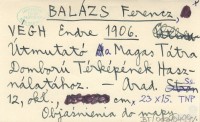 BALÁZS Ferenc,
VÉGH Endre 1906.
Útmutató A Magas Tátra
Domború Térképének Hasz-
nálatához. — Arad
12, old., cm, 23 x 15. TNP
Objasnienia do mapy